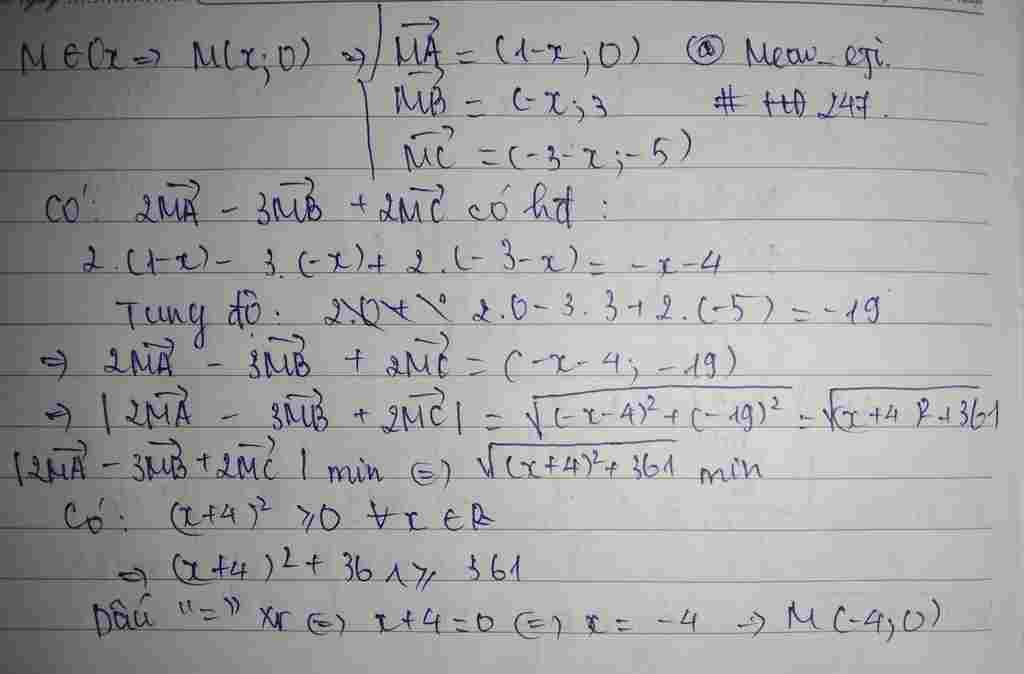 M ∈ Ox => M(x;0) => | MA→ = (1-x; 0) @ Meow_eji.
MB→ = (-x; 3 # HĐ 247.
MC→ = (-3-x; -5)
Có: 2MA→ - 3MB→ + 2MC→ có hđ :
2.(1-x) - 3.(-x) + 2.(-3-x) = -x-4
Tung độ: 2.0 - 3.3 + 2.(-5) = -19
=> 2MA→ - 3MB→ + 2MC→ = (-x-4; -19)
=> |2MA→ - 3MB→ + 2MC→| = √((-x-4)² + (-19)²) = √(x+4)²+361
|2MA→ - 3MB→ + 2MC→| min <=> √((x+4)²+361) min
Có: (x+4)² ≥ 0 ∀x ∈ R
=> (x+4)² + 361 ≥ 361
Dấu "=" xr <=> x+4=0 <=> x = -4 -> M(-4;0)